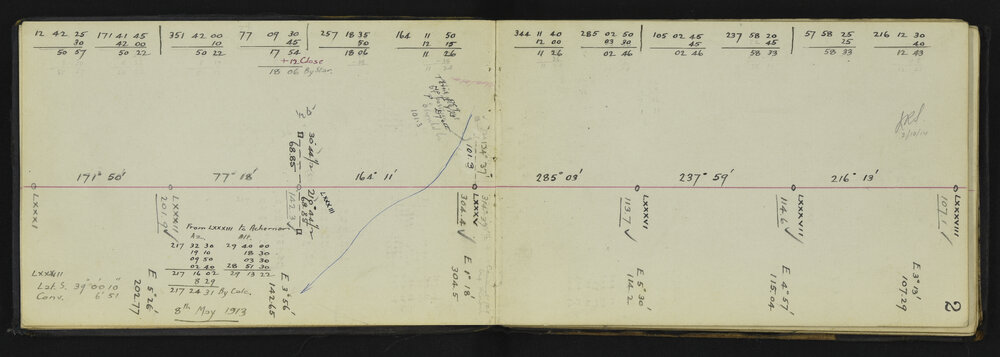 12 42 25   171 41 45   351 42 00   77 09 30   257 18 35   164 11 50
30   42 00   10   45   50   12 15
50 57   50 22   50 22   17 54   18 06   11 26
+12 Close
18 06 By Star.
344 11 40   285 02 50   105 02 45   237 58 20   57 58 25   216 12 30
12 00   03 30   45   45   25   40
11 26   02 46   02 46   58 33   58 33   12 43
101.3
30° 44½
68.85
210° 44½
68.85
101.3
2/10/14
171° 50'   77° 18'   164° 11'   285° 03'   237° 59'   216° 13'
LXXXI
LXXXII
201.9 ✓
LXXXIII
142.3 ✓
LXXXV
304.4 ✓
LXXXVI
113.7 ✓
LXXXVII
114.6 ✓
LXXXVIII
107.1 ✓
From LXXXIII to Achernar
Az.   Alt.
217 32 30   29 40 00
19 10   18 30
09 50   03 30
02 40   28 51 30
217 16 02   29 13 22
8 29
217 24 31 By Calc.
8th May 1913
LXXXIII
Lat. S. 39° 00' 10"
Conv. 6' 51
E 5° 26'
202.77
E 3° 56'
142.65
E 1° 18'
304.5
E 5° 30'
114.2
E 4° 57'
115.04
E 3° 13'
107.29
2